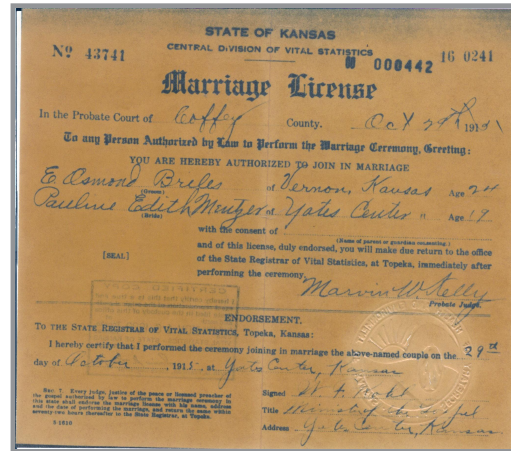 STATE OF KANSAS
CENTRAL DIVISION OF VITAL STATISTICS
No 43741
000442
16 0241
Marriage License
In the Probate Court of Coffey County. Oct 191
To any Person Authorized by Law to Perform the Marriage Ceremony, Greeting:
YOU ARE HEREBY AUTHORIZED TO JOIN IN MARRIAGE
E Osmond of Vernon, Kansas Age 24
(Groom)
Pauline Edith Mentzer of Yates Center " Age 19
(Bride)
with the consent of
(Name of parent or guardian consenting.)
and of this license, duly endorsed, you will make due return to the office
[SEAL]
of the State Registrar of Vital Statistics, at Topeka, immediately after
performing the ceremony.
Marvin W. Kelly
Probate Judge.
ENDORSEMENT.
TO THE STATE REGISTRAR OF VITAL STATISTICS, Topeka, Kansas:
I hereby certify that I performed the ceremony joining in marriage the above-named couple on the 29th
day of October, 1915, at Yates Center, Kansas
SEC. 7. Every judge, justice of the peace or licensed preacher of
the gospel authorized by law to perform the marriage ceremony in
this state shall endorse the marriage license with his name, address
and the date of performing the marriage, and return the same within
seventy-two hours thereafter to the State Registrar, at Topeka.
Signed
Title Minister of the Gospel
Address Yates Center, Kansas.